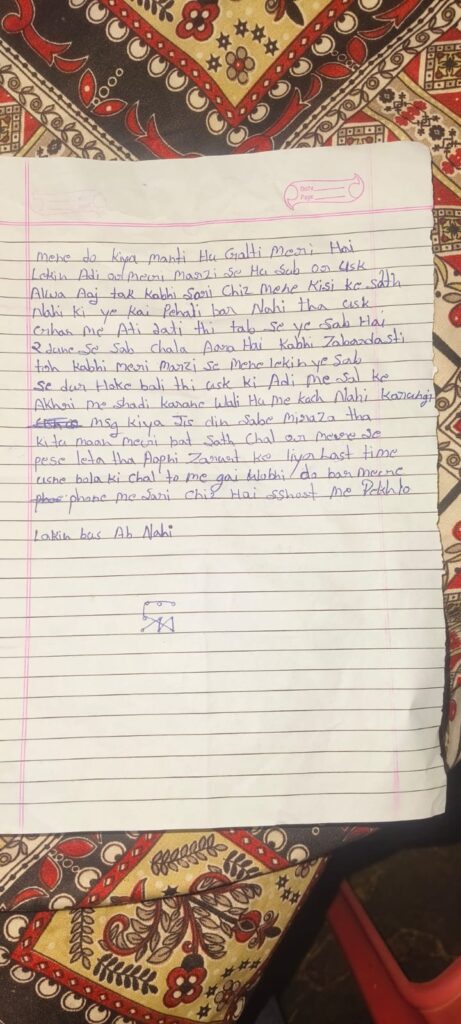 Date
Page
mene do kiya manti Hu Galti meri Hai
Lekin Adi or meri Marzi se Hu Sab or Usk
Alwa Aaj tak kabhi Sari Chiz mene Kisi ke sath
Nahi ki ye kai Pehali bar Nahi tha usk
me Ati Jati thi tab se ye sab Hai
se sab chala Aara Hai kabhi Zabardasti
toh kabhi meri marzi se mene lekin ye sab
se dur Hoke bali thi usk ki Adi me sal ke
Akhri me shadi karane wali Hu me kuch Nahi karungi
msg kiya Jis din sabe tha
ki tu maan meri bat sath chal or mere se
pese leta tha Zarurt ke liya Last time
ushe bola ki chal to me gai wobhi do bar meine
phone me sari chiz Hai sshoot me Dekhlo
Lakin bas Ab Nahi